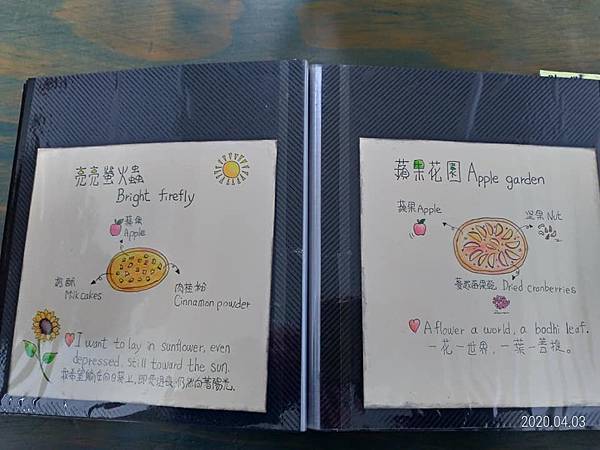 亮亮螢火蟲
Bright firefly
蘋果
Apple
奶酥
Milk cakes
肉桂粉
Cinnamon powder
I want to lay in sunflower, even
depressed, still toward the sun.
我希望躺在向日葵上,即使沮喪,仍然向著陽光.
蘋果花園 Apple garden
蘋果 Apple
堅果 Nut
蔓越莓果乾 Dried cranberries
A flower a world, a bodhi leaf.
一花一世界,一葉一菩提。
2020.04.03